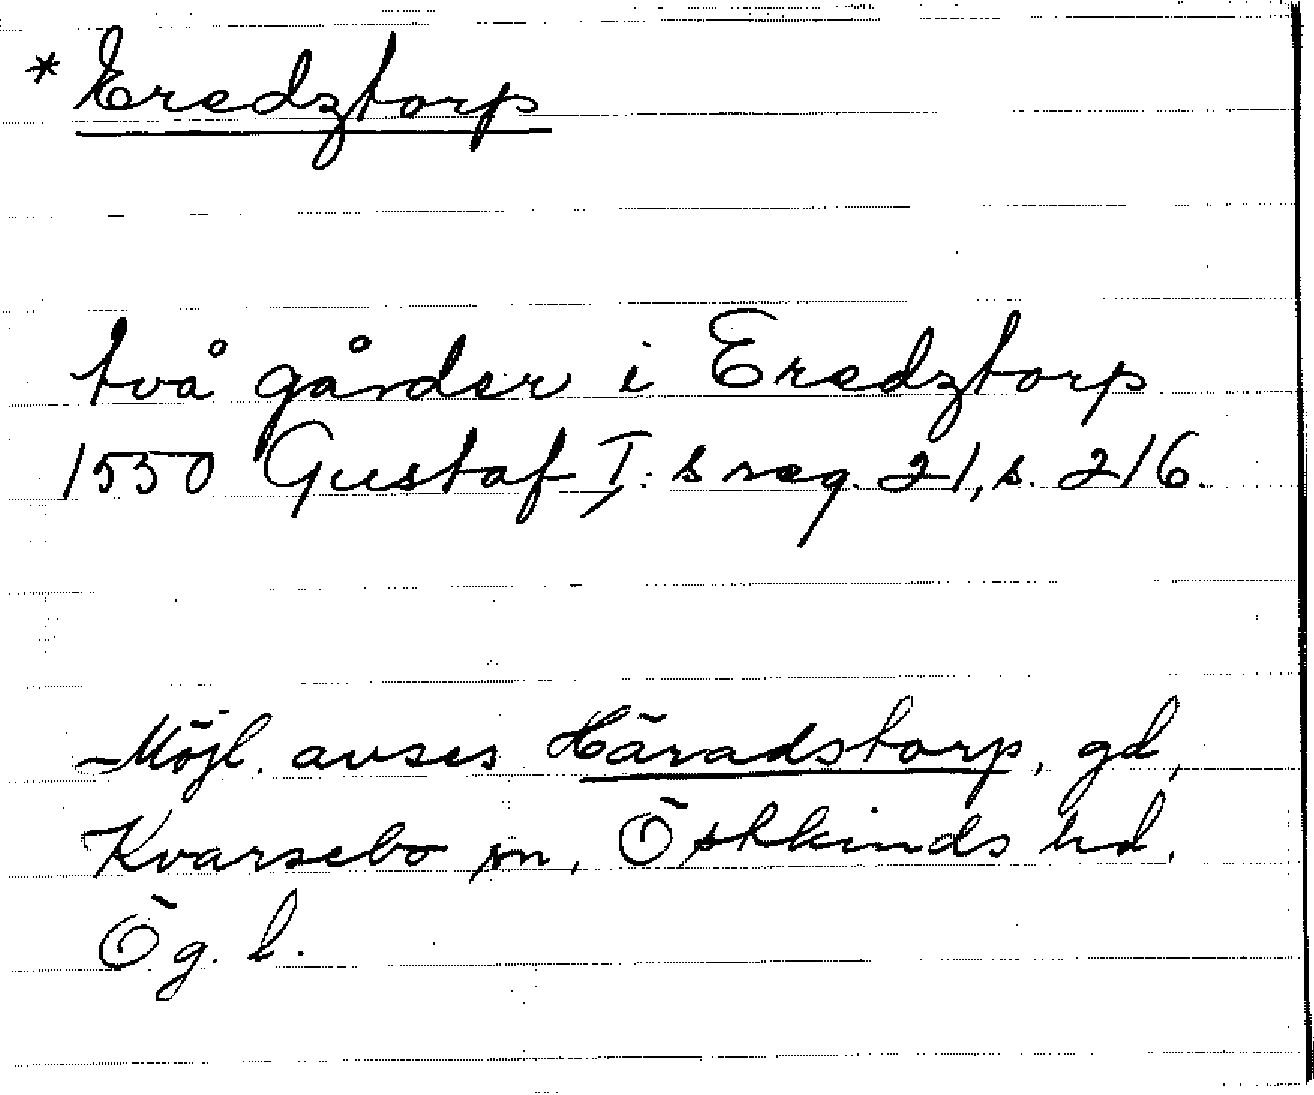 * Eredztorp
två gårder i Eredztorp
1550 Gustaf I:s reg. 21, s. 216.
Möjl. avses Häradstorp, gd,
Kvarsebo sn, Östkinds hd,
Ög. l.